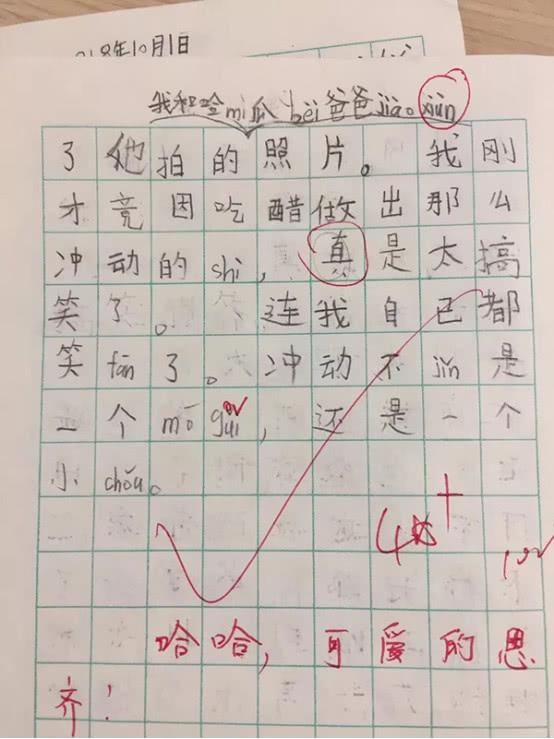 018年10月1日
我和哈mì瓜bèi爸爸jiāoxùn
了他拍的照片。我刚
才竟因吃醋做出那么
冲动的shì，真是太搞
笑了。连我自己都
笑fān了。冲动不jǐn是
一个mó guǐ，还是一个
小chǒu。
4☆+
哈哈，可爱的思
齐！